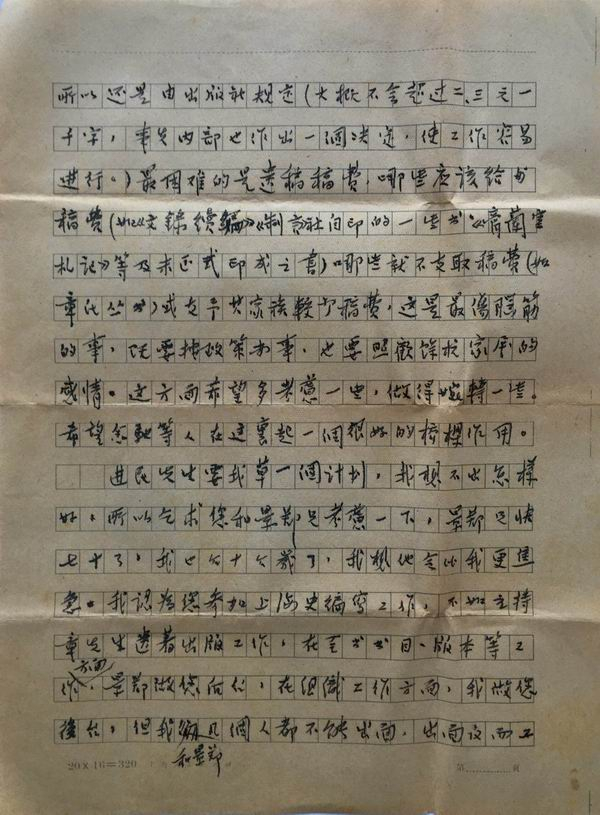 所以还是由出版社规定(大概不会超过二、三元一
千字,事先内部也作出一個决定,使工作容易
进行。)最困难的是遗稿稿费,哪些应该给
稿费(如《文録續编》《制言社自印的一些书《菿蘭室
札记》等及未正式印成之書)哪些就不支取稿费(如
章氏丛书)或支予其家族較少稿费,这是最傷脑筋
的事,既要按政策办事,也要照顧
感情。这方面希望多考慮一些,做得婉轉一些。
希望您等人在这裏起一個很好的橋樑作用。
进民先生要我草一個计划,我想不出怎样
好,所以乞求您和景郑兄考慮一下,景郑兄快
七十了,我也六十六歲了,我想他会比我更焦
急。我認為您参加上海史编寫工作,不如主持
章先生遺著出版工作,在书目、版本等工
作方面,景郑做您後台,在组織工作方面,我做您
後台,但我和景郑個人都不能出面,出面反而
20×16=320
第